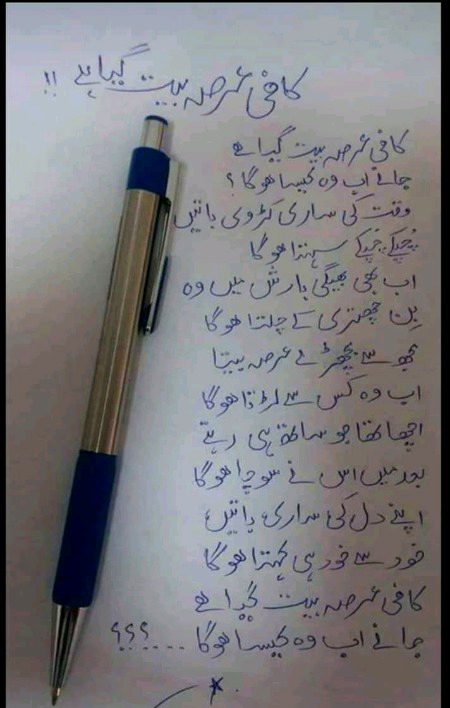 کافی عرصہ بیت گیا ہے !!
کافی عرصہ بیت گیا ہے
جانے اب وہ کیسا ہوگا ؟
وقت کی ساری کڑوی باتیں
چپکے چپکے سہتا ہوگا
اب بھی بھیگی بارش میں وہ
بِن چھتری کے چلتا ہوگا
مجھ سے بچھڑے عرصہ بیتا
اب وہ کس سے لڑتا ہوگا
اچھا تھا جو ساتھ ہی رہتے
بعد میں اس نے سوچا ہوگا
اپنے دل کی ساری باتیں
خود سے خود ہی کہتا ہوگا
کافی عرصہ بیت گیا ہے
جانے اب وہ کیسا ہوگا ...... ؟؟؟